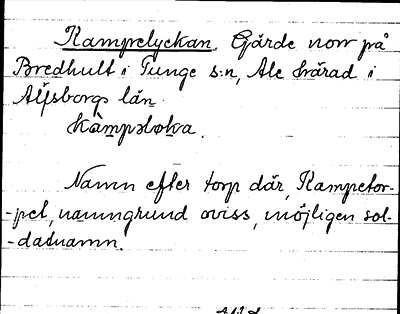 Kampelyckan. Gärde norr på
Bredhult i Tunge s:n, Ale härad i
Älfsborgs län.
Kàmpəløka.
Namn efter torp där, Kampetor-
-pet, namngrund oviss, möjligen sol-
-datnamn.